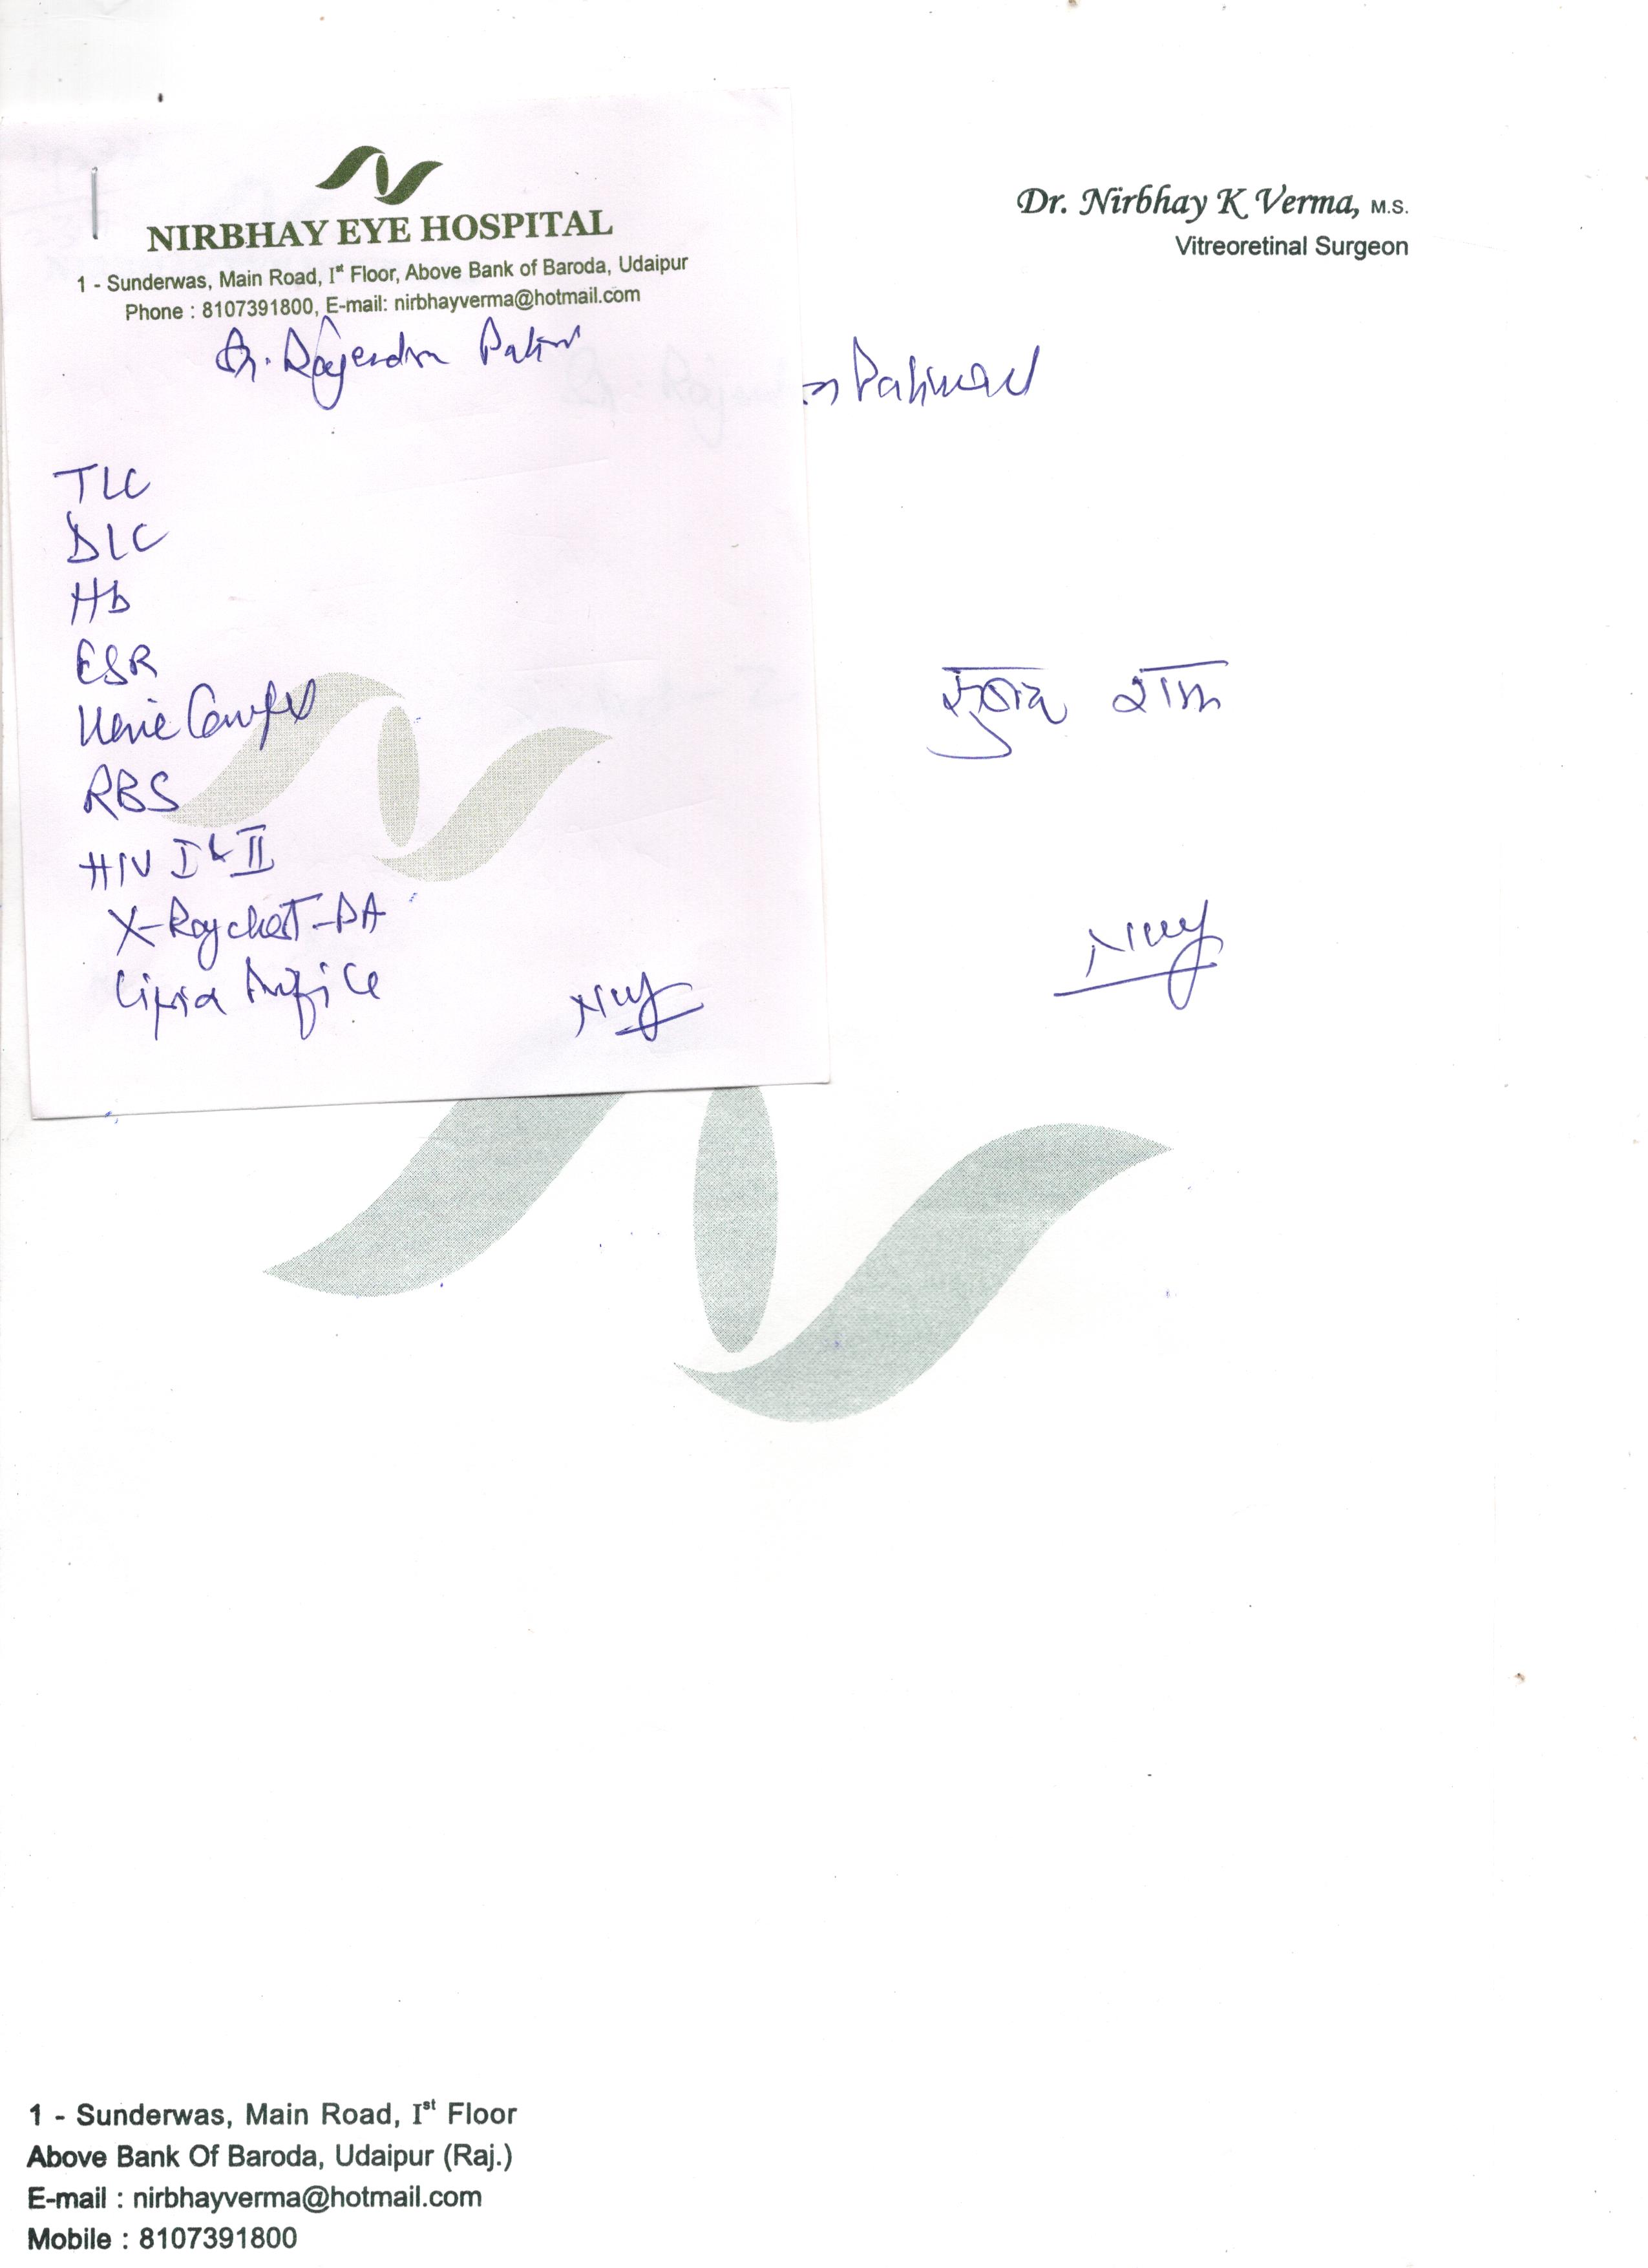 NIRBHAY EYE HOSPITAL
1 - Sunderwas, Main Road, Ist Floor, Above Bank of Baroda, Udaipur
Phone : 8107391800, E-mail: nirbhayverma@hotmail.com
Dr. Rajendra
TLC
DLC
Hb
ESR
Urine
RBS
HIV I & II
X-Ray chest-PA
Dr. Nirbhay K Verma, M.S.
Vitreoretinal Surgeon
सुबह शाम
1 - Sunderwas, Main Road, Ist Floor
Above Bank Of Baroda, Udaipur (Raj.)
E-mail : nirbhayverma@hotmail.com
Mobile : 8107391800